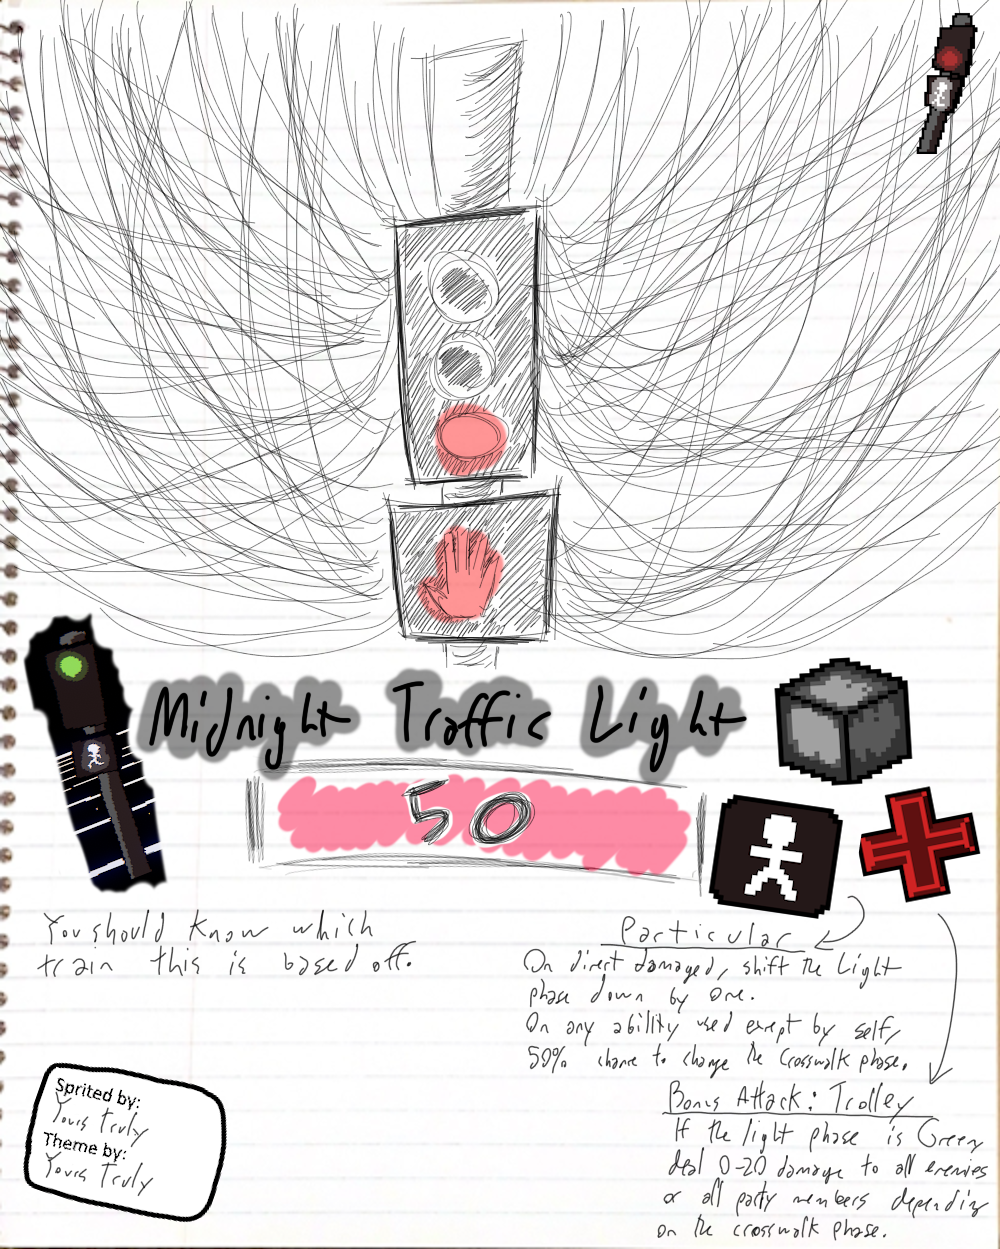 Midnight Traffic Light
50
You should know which
train this is based off.
Particular
On direct damaged, shift the Light
phase down by one.
On any ability used except by self,
50% chance to change the Crosswalk phase.
Bonus Attack: Trolley
If the light phase is Green
deal 0-20 damage to all enemies
or all party members depending
on the crosswalk phase.
Sprited by:
Yours Truly
Theme by:
Yours Truly